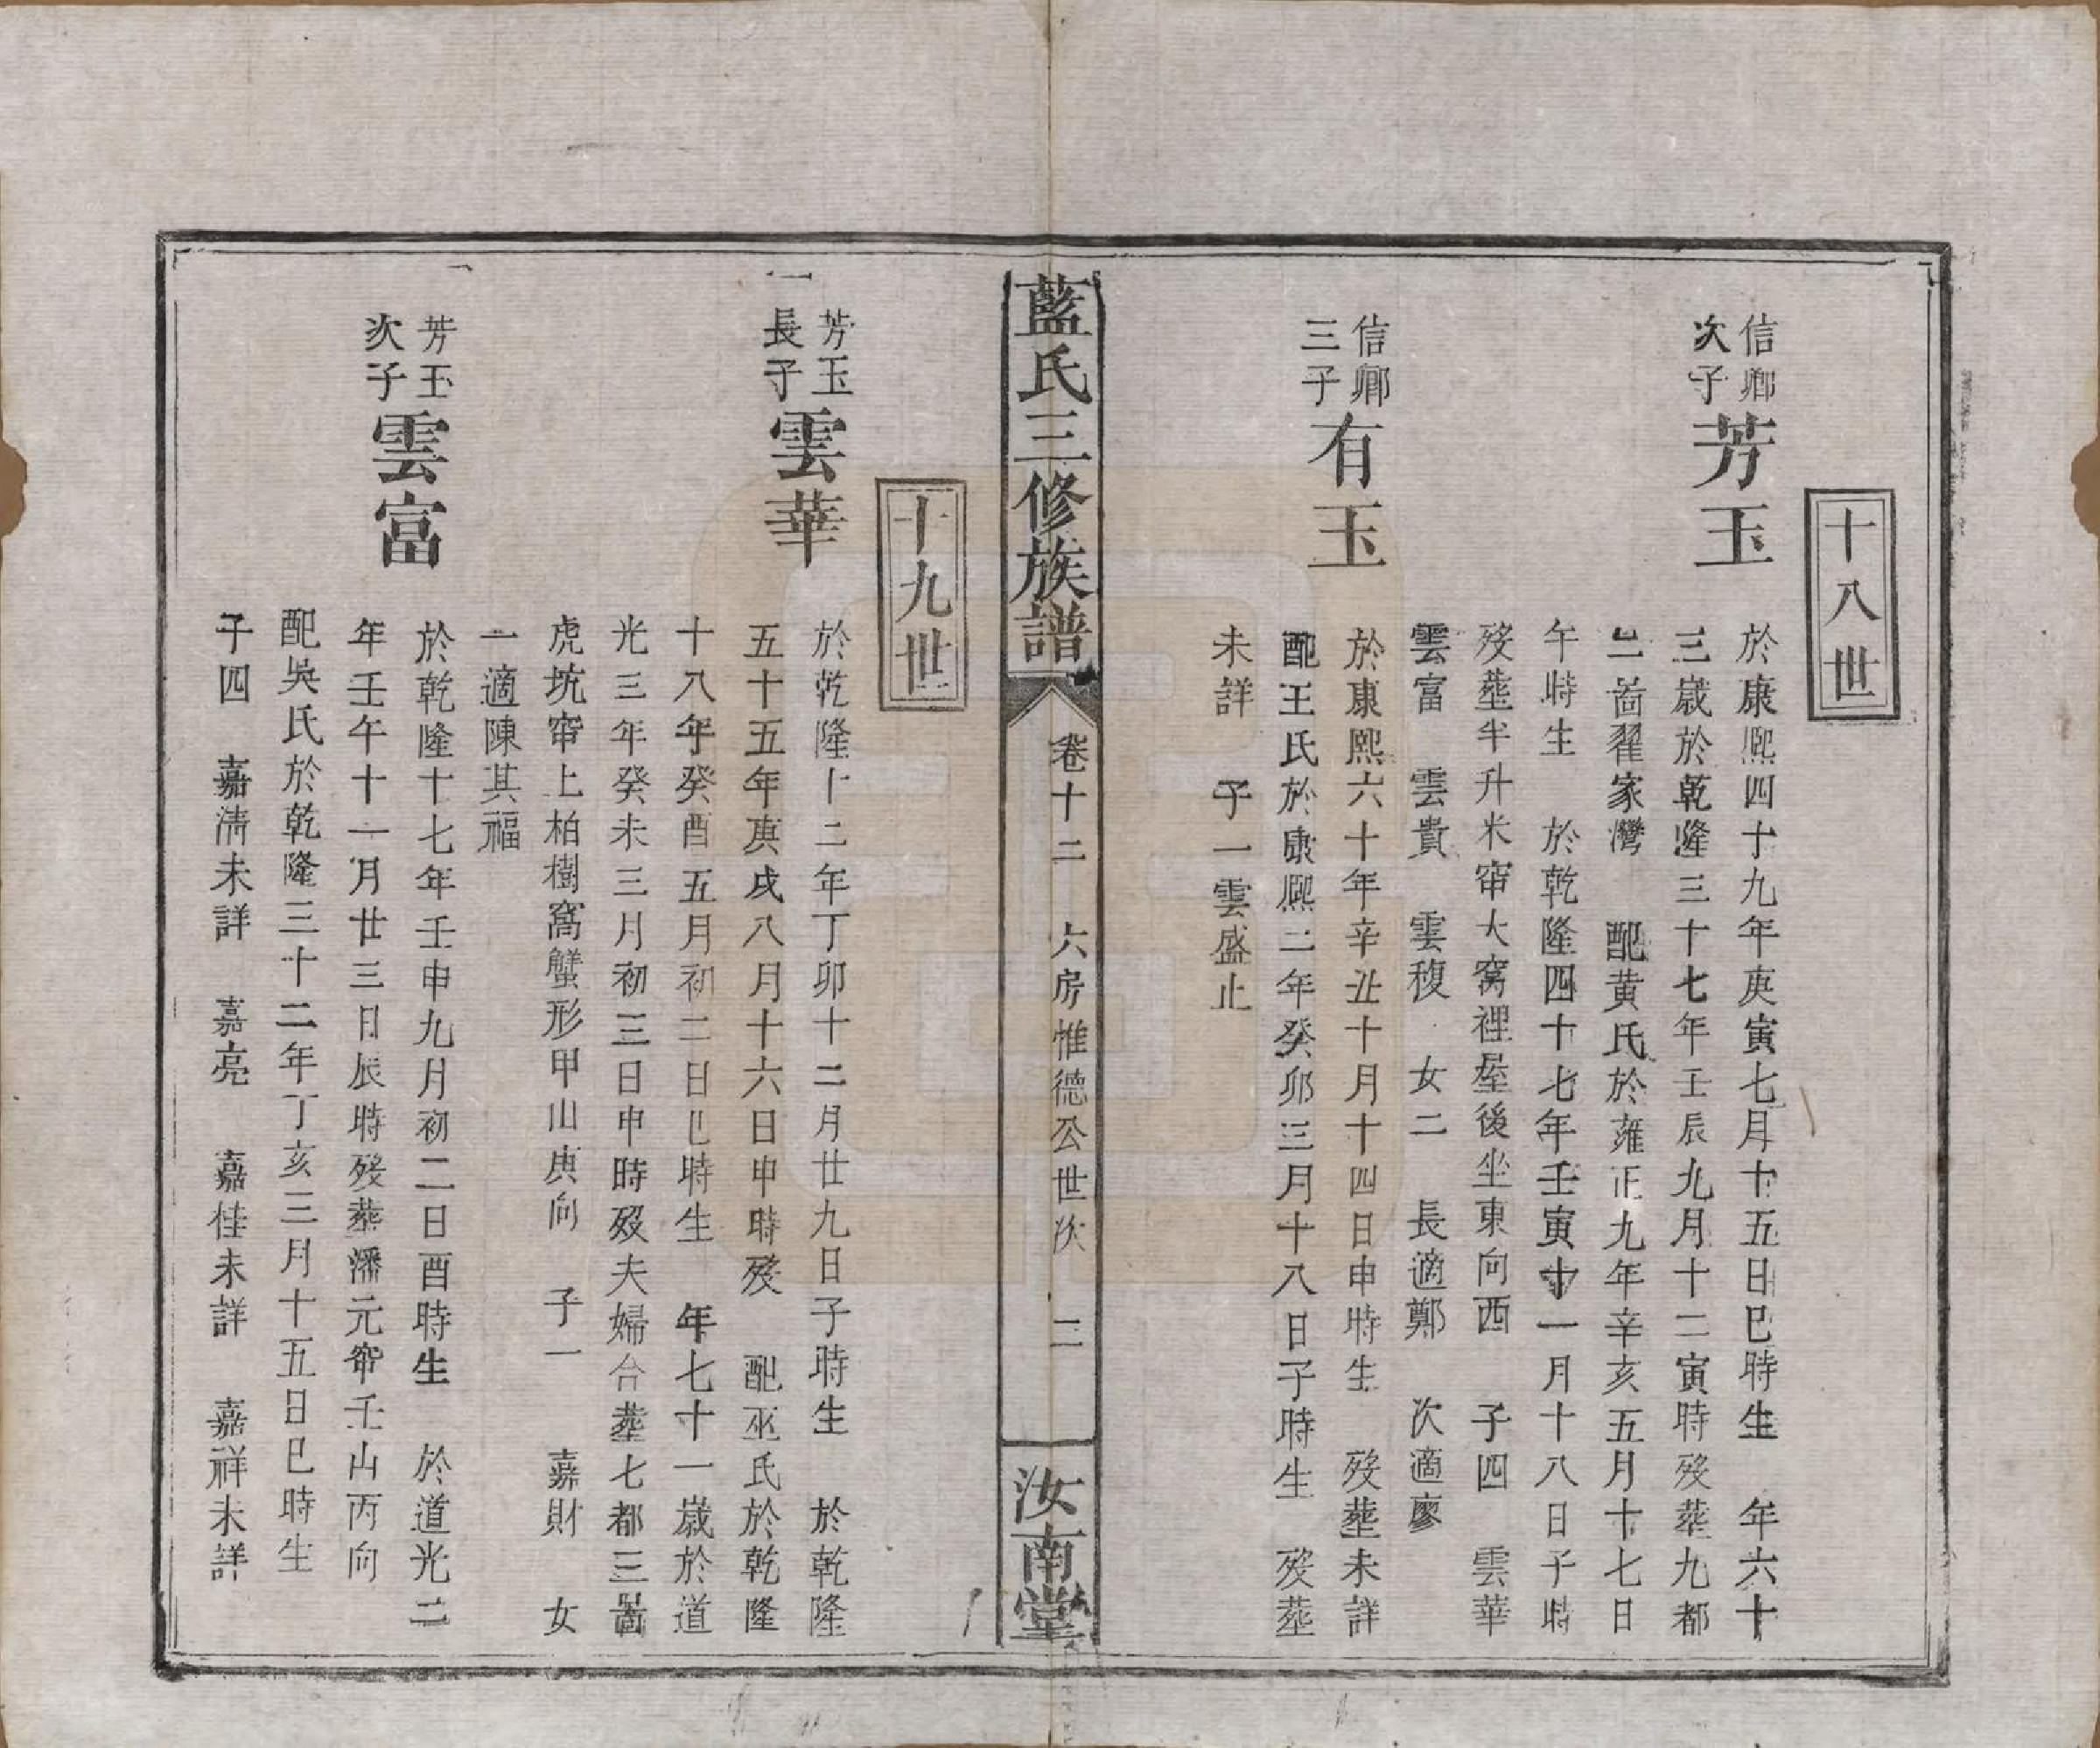 十八世
信卿
次子
芳玉
於康熙四十九年庚寅七月十五日巳時生　年六十
三歲於乾隆三十七年壬辰九月十二寅時歿葬九都
二啚翟家灣　配黄氏於雍正九年辛亥五月十七日
午時生　於乾隆四十七年壬寅十一月十八日子時
歿葬半升米窜大窩裡屋後坐東向西　子四　雲華
雲富　雲貴　雲稪　女二　長適鄭　次適廖
信卿
三子
有玉
於康熙六十年辛丑十月十四日申時生　歿葬未詳
配王氏於康熙二年癸卯三月十八日子時生　歿葬
未詳　子一雲盛止
藍氏三修族譜
卷十二　六房惟德公世次　二
汝南堂
十九世
芳玉
長子
雲華
於乾隆十二年丁卯十二月廿九日子時生　於乾隆
五十五年庚戌八月十六日申時歿　配巫氏於乾隆
十八年癸酉五月初二日巳時生　年七十一歲於道
光三年癸未三月初三日申時歿夫婦合葬七都三啚
虎坑窜上柏樹窩蟹形甲山庚向　子一　嘉財　女
一適陳其福
芳玉
次子
雲富
於乾隆十七年壬申九月初二日酉時生　於道光二
年壬午十一月廿三日辰時歿葬潘元窜壬山丙向
配吳氏於乾隆三十二年丁亥三月十五日巳時生
子四　嘉清未詳　嘉亮　嘉佳未詳　嘉祥未詳